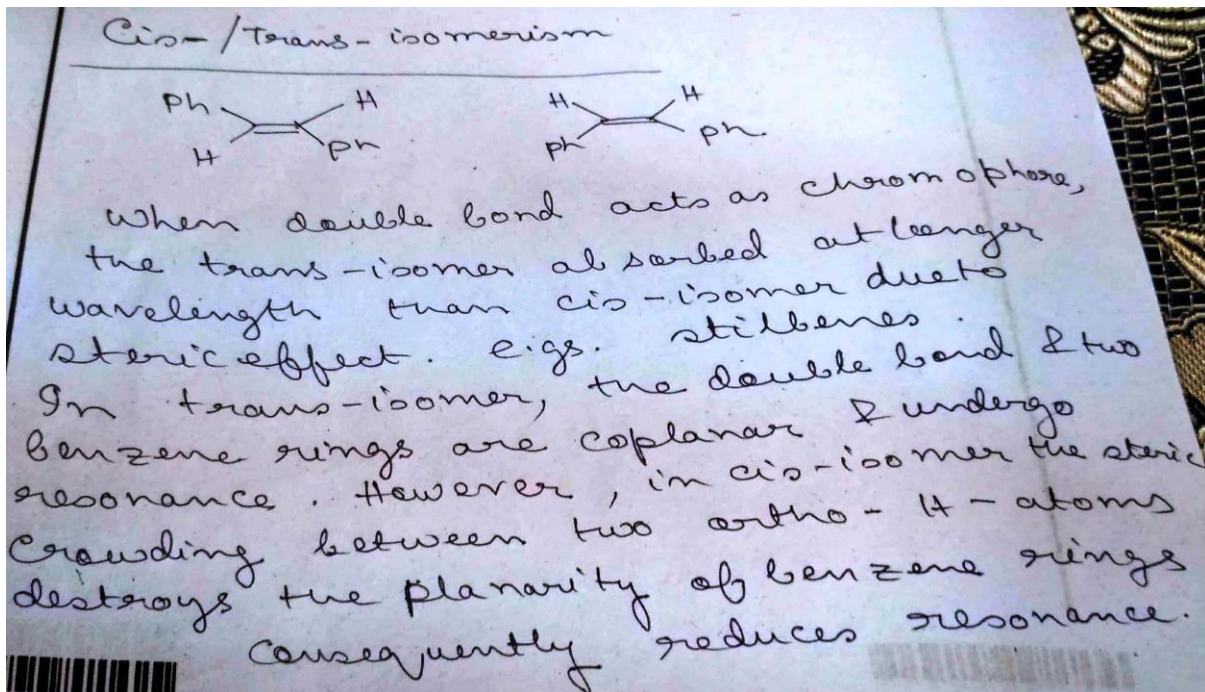 Cis-/Trans-isomerism
Ph H H H
H Ph Ph Ph.
When double bond acts as chromophore,
the trans-isomer absorbed at longer
wavelength than cis-isomer due to
steric effect. e.gs. stilbenes.
In trans-isomer, the double bond & two
benzene rings are coplanar & undergo
resonance. However, in cis-isomer the steric
crowding between two ortho-H-atoms
destroys the planarity of benzene rings
consequently reduces resonance.